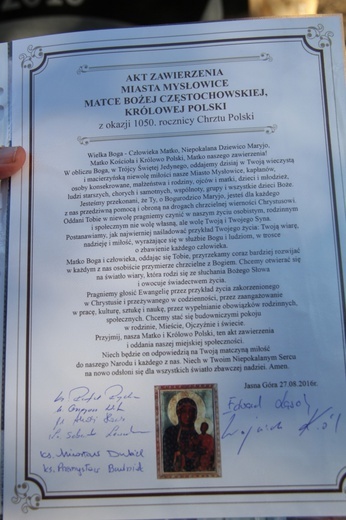 2015
AKT ZAWIERZENIA
MIASTA MYSŁOWICE
MATCE BOŻEJ CZĘSTOCHOWSKIEJ,
KRÓLOWEJ POLSKI
z okazji 1050. rocznicy Chrztu Polski
Wielka Boga - Człowieka Matko, Niepokalana Dziewico Maryjo,
Matko Kościoła i Królowo Polski, Matko naszego zawierzenia!
W obliczu Boga, w Trójcy Świętej Jedynego, oddajemy dzisiaj w Twoją wieczystą
i macierzyńską niewolę miłości nasze Miasto Mysłowice, kapłanów,
osoby konsekrowane, małżeństwa i rodziny, ojców i matki, dzieci i młodzież,
ludzi starszych, chorych i samotnych, wspólnoty, grupy i wszystkie dzieci Boże.
Jesteśmy przekonani, że Ty, o Bogurodzico Maryjo, jesteś dla każdego
z nas przedziwną pomocą i obroną na drogach chrzcielnej wierności Chrystusowi.
Oddani Tobie w niewolę pragniemy czynić w naszym życiu osobistym, rodzinnym
i społecznym nie wolę własną, ale wolę Twoją i Twojego Syna.
Postanawiamy, jak najwierniej naśladować przykład Twojego życia: Twoją wiarę,
nadzieję i miłość, wyrażające się w służbie Bogu i ludziom, w trosce
o zbawienie każdego człowieka.
Matko Boga i człowieka, oddając się Tobie, przyrzekamy coraz bardziej rozwijać
w każdym z nas osobiście przymierze chrzcielne z Bogiem. Chcemy otwierać się
na światło wiary, która rodzi się ze słuchania Bożego Słowa
i owocuje świadectwem życia.
Pragniemy głosić Ewangelię przez przykład życia zakorzenionego
w Chrystusie i przeżywanego w codzienności, przez zaangażowanie
w pracę, kulturę, sztukę i naukę, przez wypełnianie obowiązków rodzinnych,
społecznych. Chcemy stać się budowniczymi pokoju
w rodzinie, Mieście, Ojczyźnie i świecie.
Przyjmij, nasza Matko i Królowo Polski, ten akt zawierzenia
i oddania naszej miejskiej społeczności.
Niech będzie on odpowiedzią na Twoją matczyną miłość
do naszego Narodu i każdego z nas. Niech w Twoim Niepokalanym Sercu
na nowo odsłoni się dla wszystkich światło zbawczej nadziei. Amen.
Jasna Góra 27.08.2016r.
Edward
Wojciech Król
ks.
ks. Przemysław